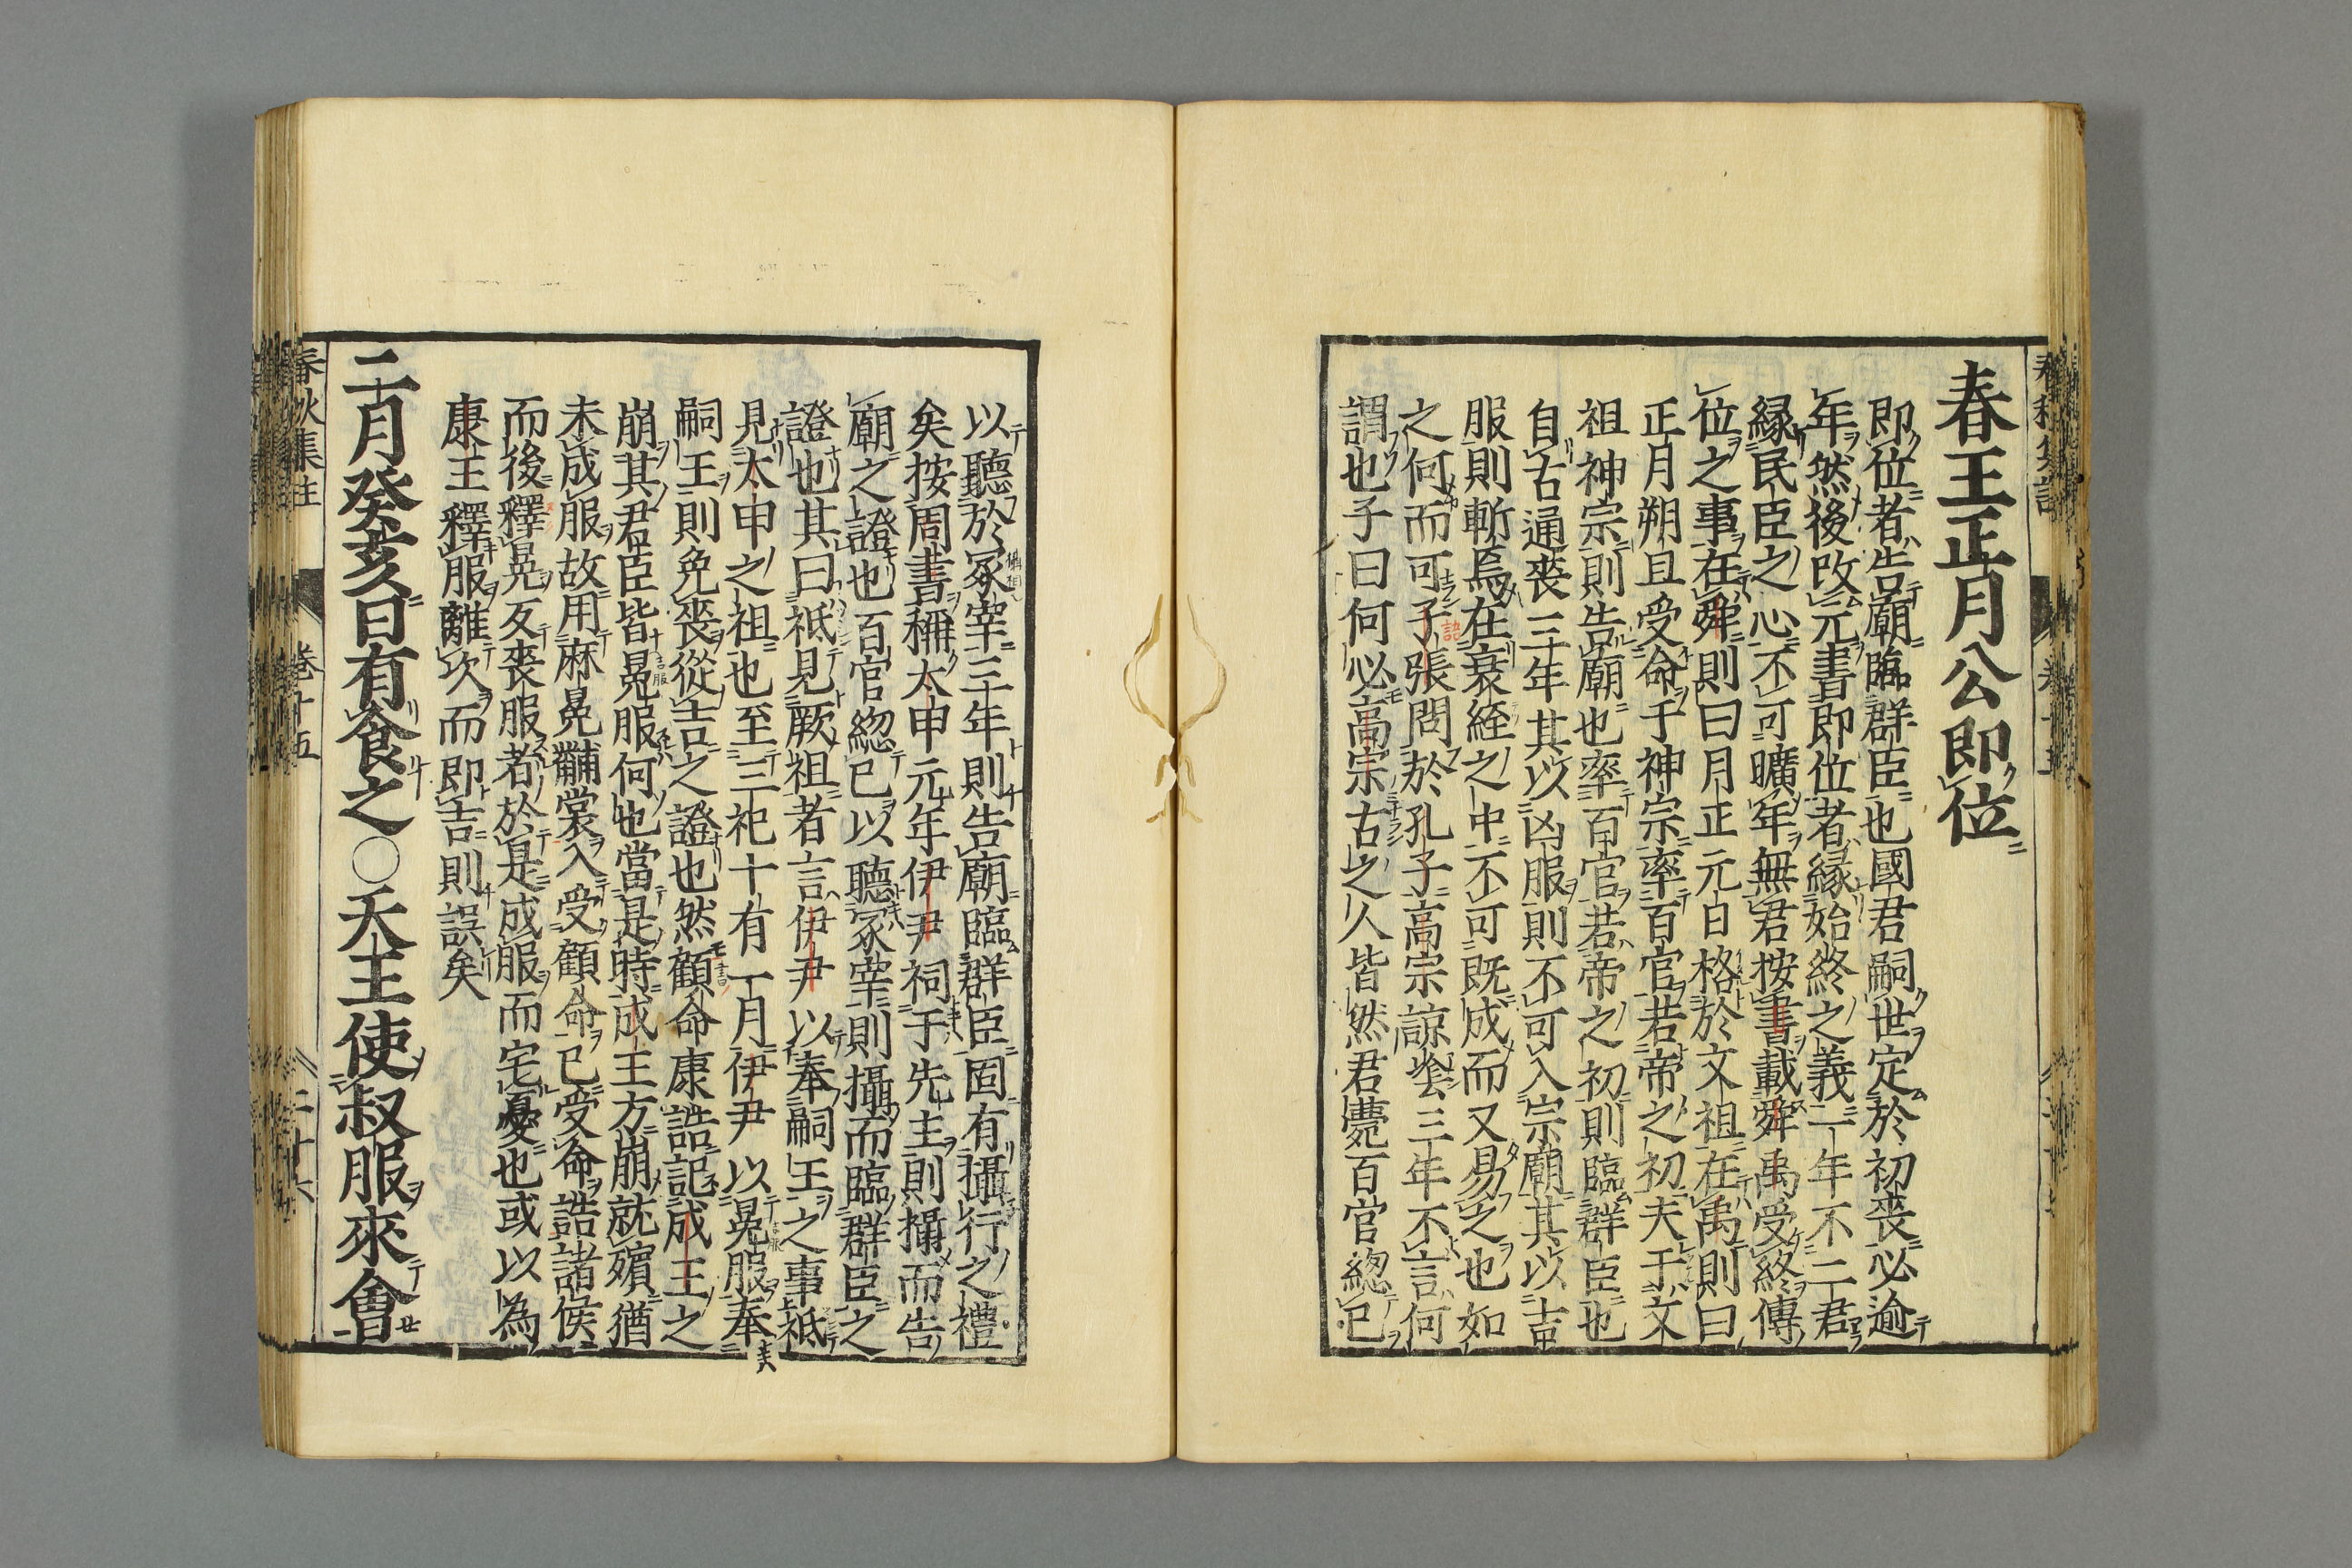 春王正月公即位
即位者告廟臨群臣也國君嗣世定於初喪必逾
年然後改元書即位者緣始終之義一年不二君
緣民臣之心不可曠年無君按書載舜禹受終傳
位之事在舜則曰月正元日格於文祖在禹則曰
正月朔旦受命于神宗率百官若帝之初夫于文
祖神宗則告廟也率百官若帝之初則臨群臣也
自古通喪三年其以凶服則不可入宗廟其以吉
服則斬焉在衰絰之中不可既成而又易之也如
之何而可子張問於孔子高宗諒陰三年不言何
謂也子曰何必高宗古之人皆然君薨百官總已
以聽於冢宰三年則告廟臨群臣固有攝行之禮
矣按周書稱太甲元年伊尹祠于先王則攝而告
廟之證也百官總已以聽冢宰則攝而臨群臣之
證也其曰祗見厥祖者言伊尹以奉嗣王之事祗
見太甲之祖也至三祀十有一月伊尹以冕服奉
嗣王則免喪從吉之證也然顧命康誥記成王之
崩其君臣皆冕服何也當是時成王方崩就殯猶
未成服故用麻冕黼裳入受顧命已受命誥諸侯
而後釋冕反喪服者於是成服而宅憂也或以為
康王釋服離次而即吉則誤矣
二月癸亥日有食之○天王使叔服來會
春秋集註
卷十五
二十六